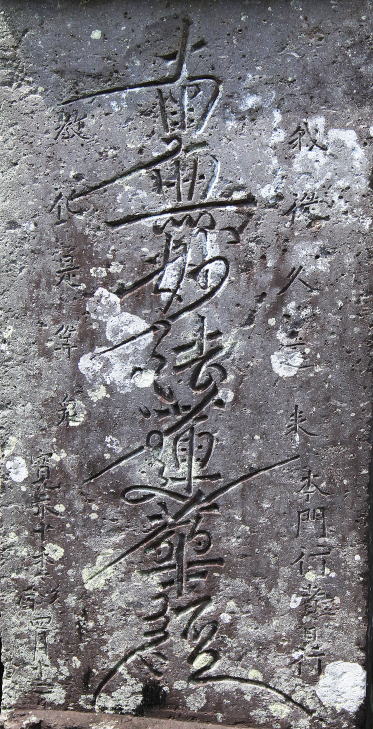 我從久遠来
本門行者日行
南無妙法蓮華經
教化是等衆
四月十三